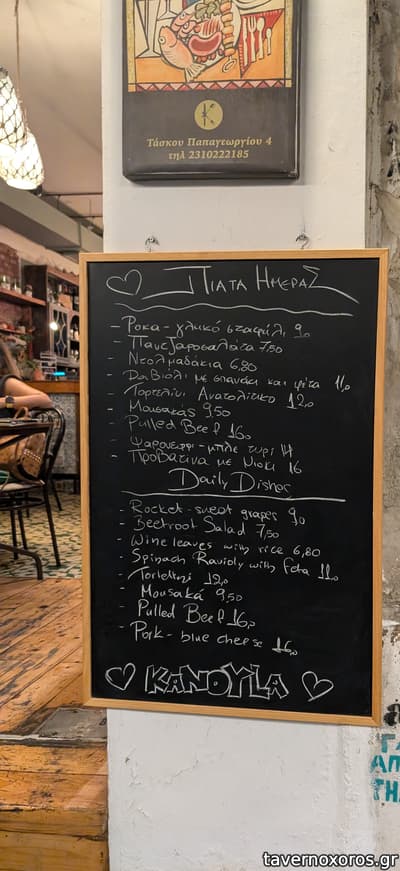 Τάσκου Παπαγεωργίου 4
τηλ 2310222185
ΠΙΑΤΑ ΗΜΕΡΑΣ
- Ροκα - γλυκό σταφύλι 9,0
- Παντζαροσαλάτα 7,50
- Ντολμαδάκια 6,80
- Ραβιόλι με σπανάκι και φέτα 11,0
- Τορτελίνι Ανατολίτικο 12,0
- Μουσακάς 9,50
- Pulled Beef 16,0
- Ψαρονέφρι - μπλε τυρί 14
- Προβατίνα με Νιόκι 16
Daily Dishes
- Rocket - sweet grapes 9,0
- Beetroot Salad 7,50
- Wine leaves with rice 6,80
- Spinach Ravioly with Feta 11,0
- 12,0
- Mousaká 9,50
- Pulled Beef 16,0
- Pork - blue cheese 16,0
ΚΑΝΟΥLΑ
ΑΠ
ΤΗ
tavernoxoros.gr